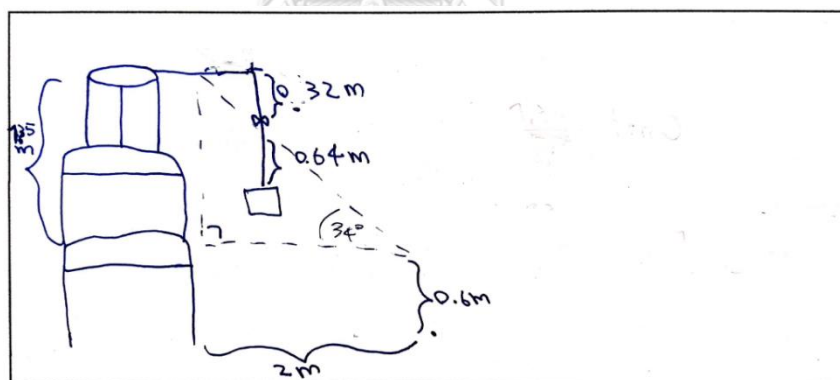 0.32m
0.64m
34°
0.6m
2m